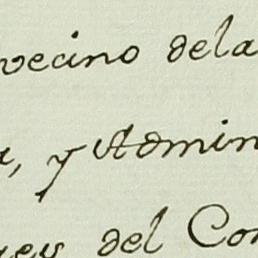 vecino dela
, y Admin
del Con